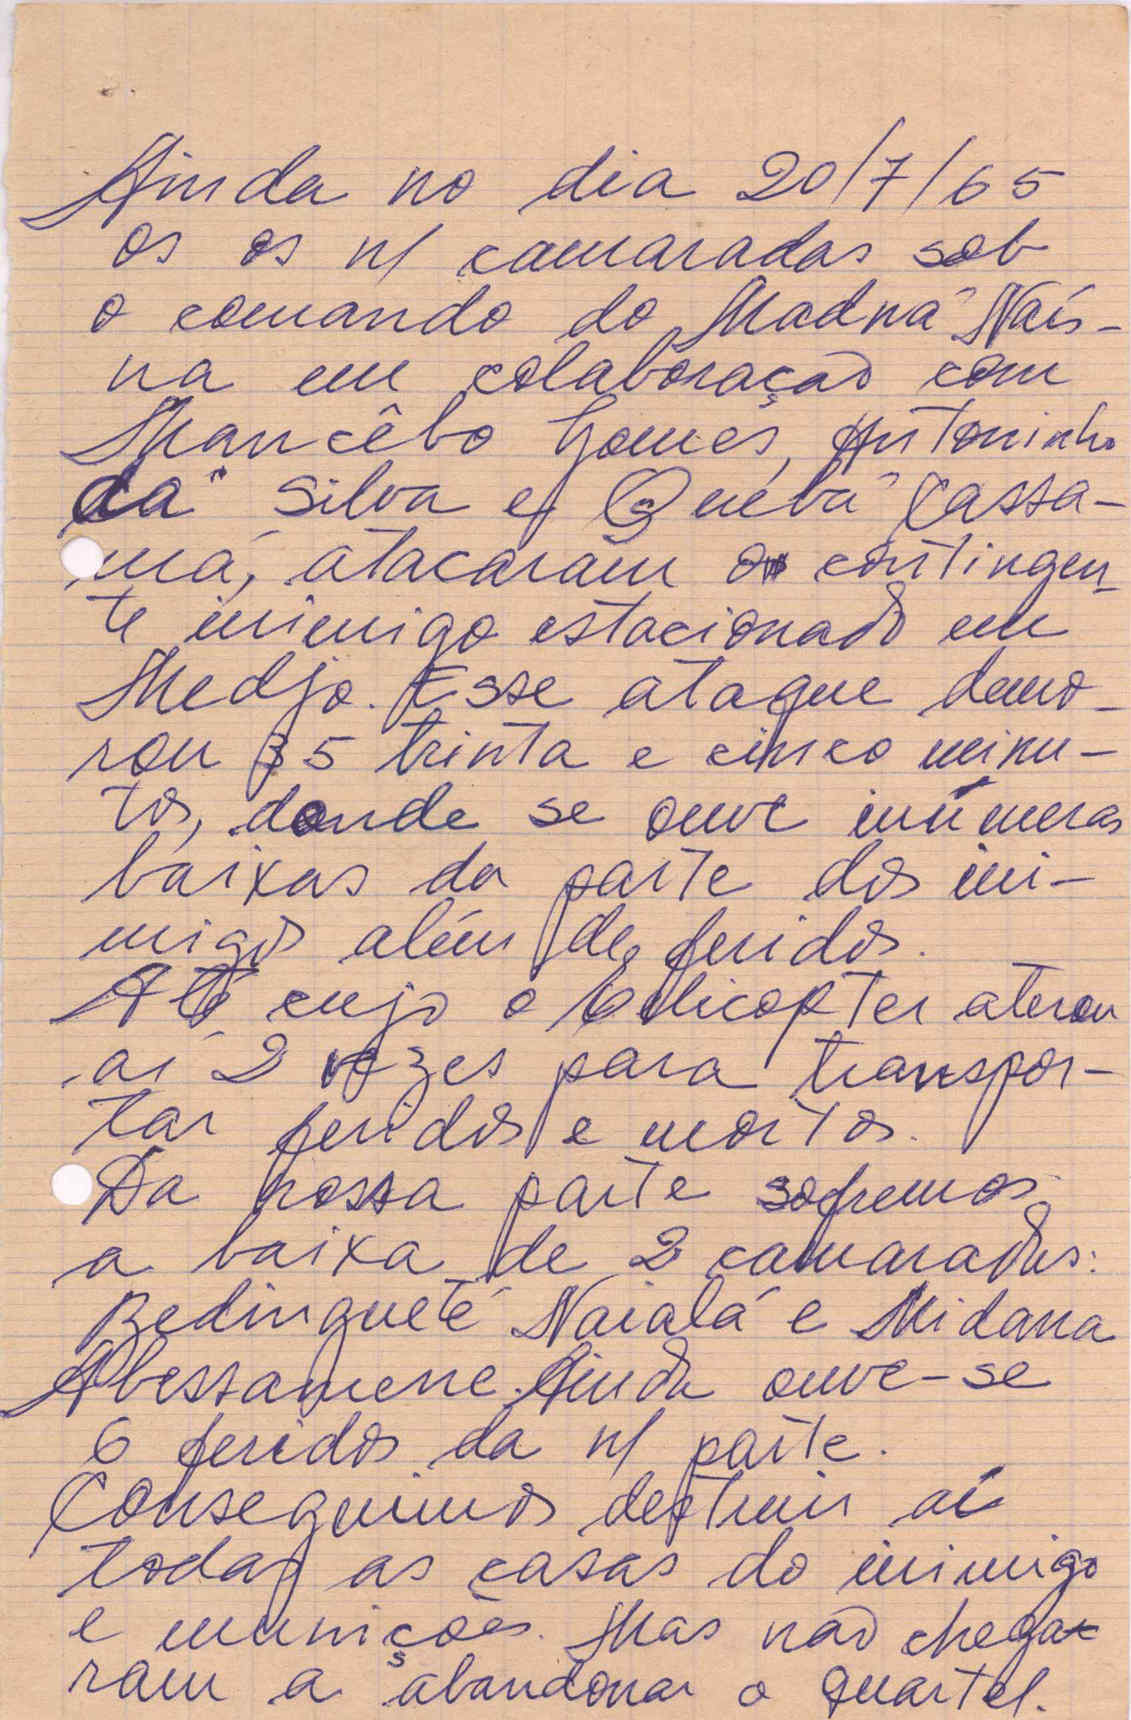 Ainda no dia 20/7/65
os os n/ camaradas sob
o comando do Madná Naís-
na em colaboraçaõ com
Mancêbo Gomes, Antoninho
da Silva e Quebá Cassa-
má, atacaram o contingen-
te inimigo estacionado em
Medjo. Esse ataque demo-
rou 35 trinta e cinco minu-
tos, donde se ouve inúmeras
baixas da parte dos ini-
migos além de feridos.
Até cujo o helicopter aterou
aí 2 vezes para transpor-
tar feridos e mortos.
Da nossa parte sofremos
a baixa de 2 camaradas:
Bedingueté Naialá e Midana
Abessamene. Ainda ouve-se
6 feridos da n/ parte.
Conseguimos destruir aí
todas as casas do inimigo
e munições. Mas naõ chega-
ram a abandonar o quartel.